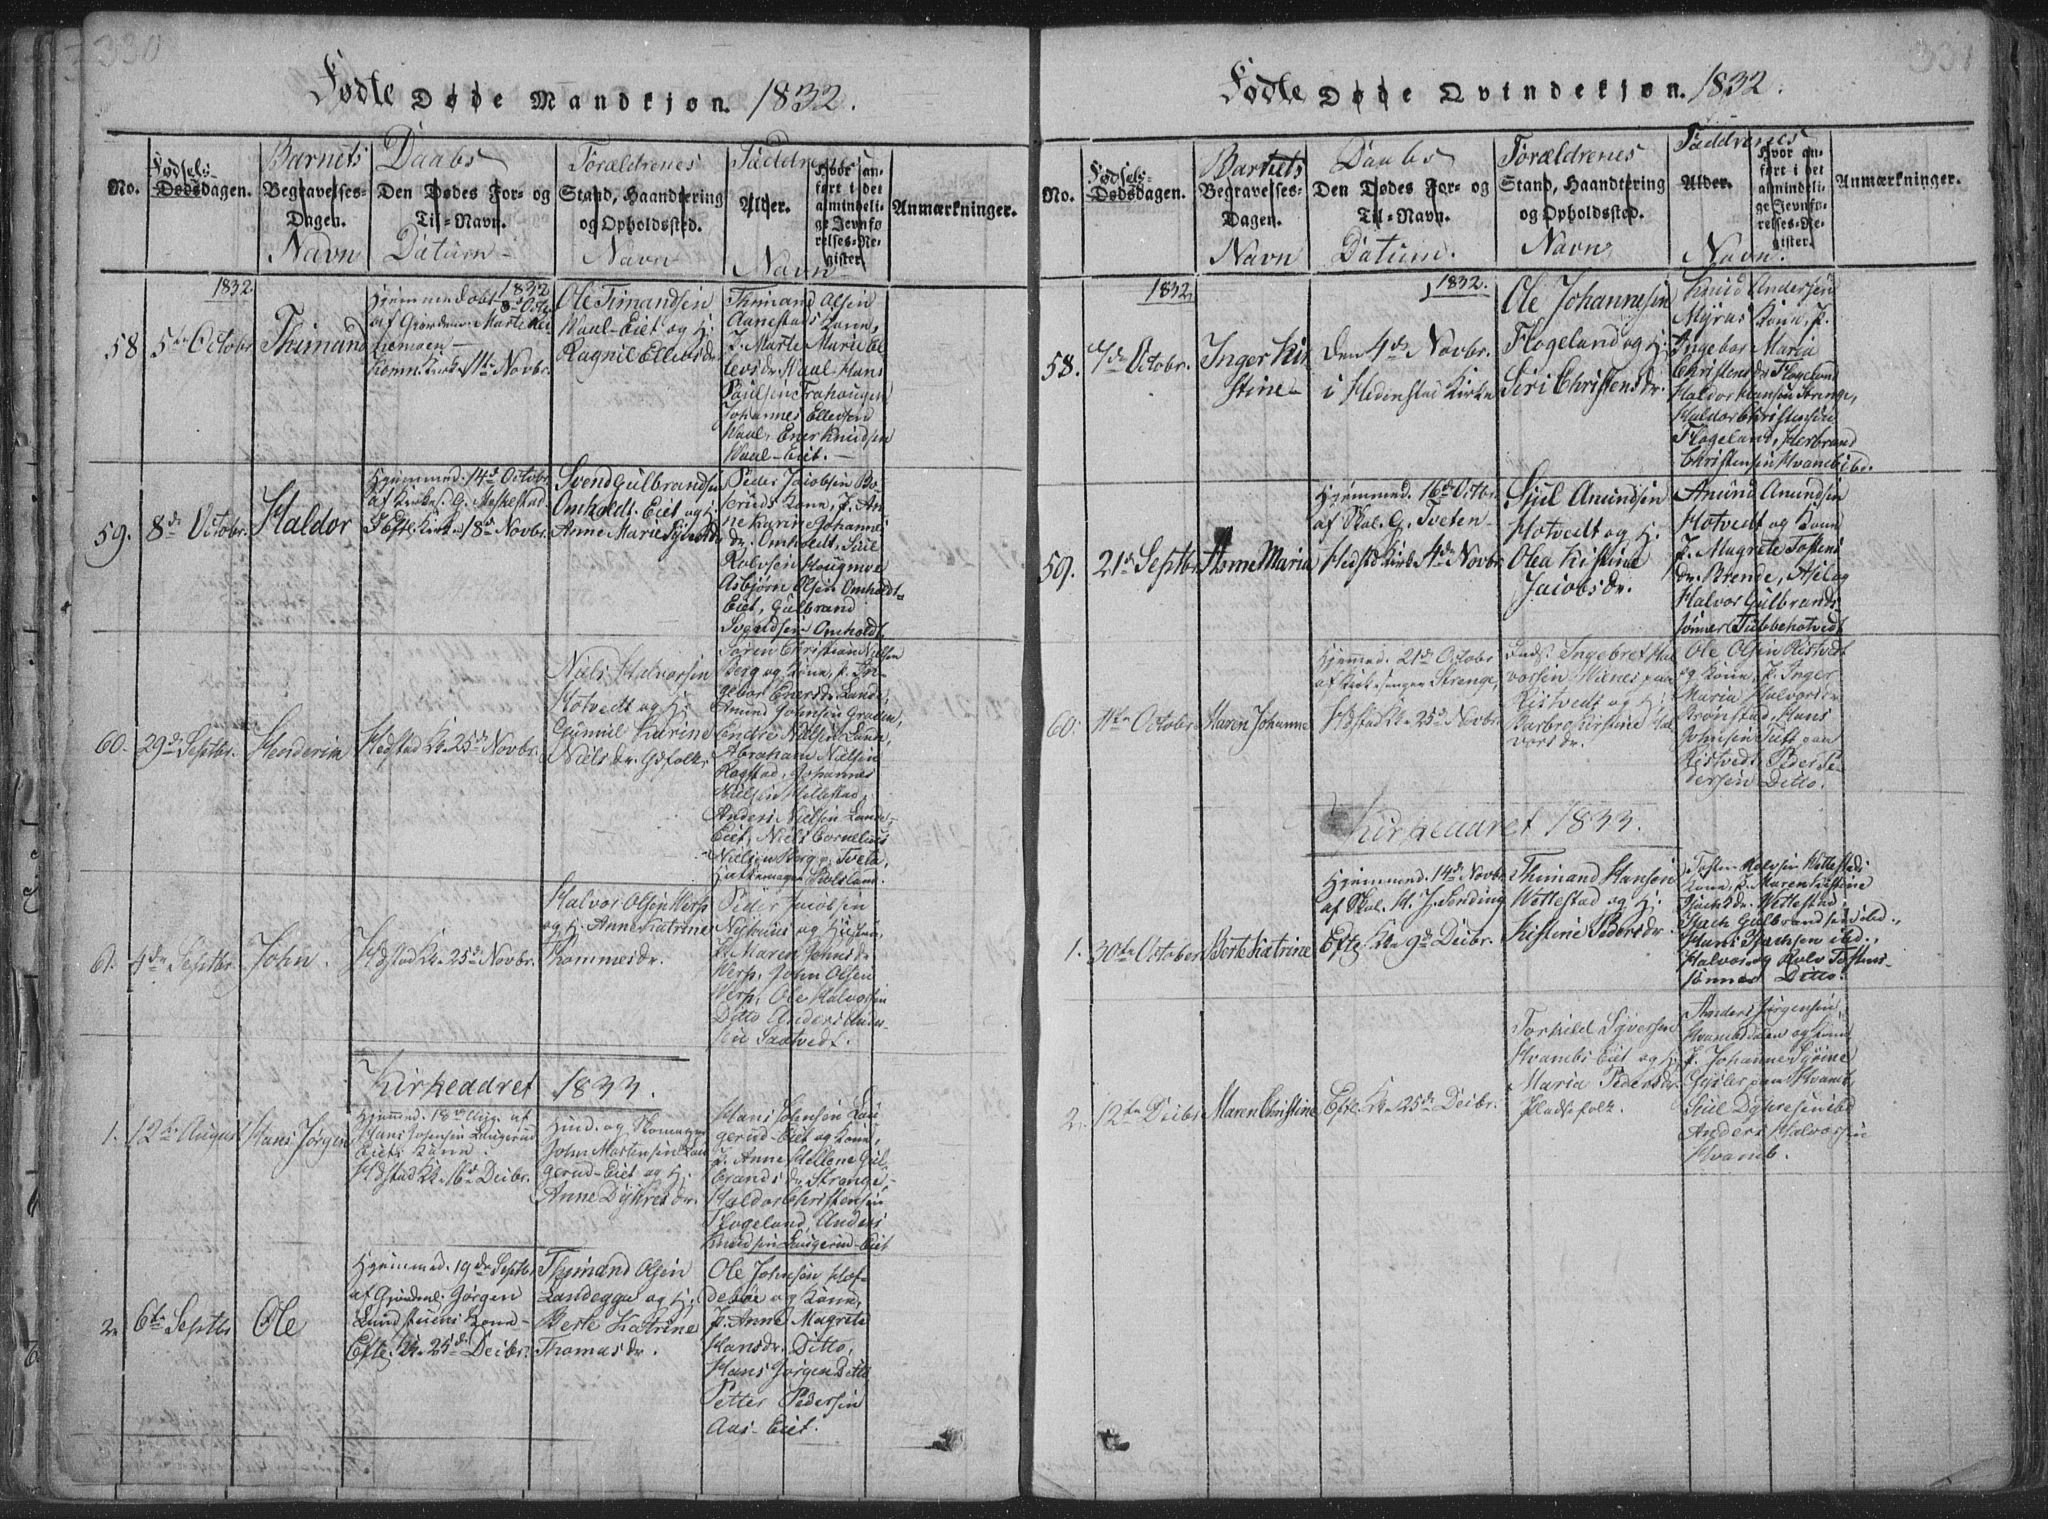 330
Fødte Døde Mandkjøn. 1832.
No.
Fødsels-
Dødsdagen.
Barnets
Begravelses-
Dagen.
Navn
Daabs
Den Dødes For- og
Til-Navn.
Datum
Forældrenes
Stand, Haandtering
og Opholdssted.
Navn
Faddrenes
Alder.
Navn
Hvor an-
ført i det
almindeli-
ge Jevnfø-
relses-Re-
gister.
Anmærkninger.
58.
1832
5te Octobr
Thimand
1832
Hjemmedøbt 8de Octb
af Gjordem. Marte
Komn. Kirke 11te Novbr.
Ole Timandsen
Waal-Eiet og H.
Ragnil Ellevsdr
Thimand Olsen
Aanestads Kone,
P. Marte Marie El
levsdr. Waal, Hans
Poulsen Trahaugen
Johannes Ellevsen
Waal, Ener Knudsen
Waal-Eiet.
59.
8de Octobr.
Haldor
Hjemmed. 14de Octobr.
af Kirkes. G. Meheltad
Eftel. Kirke 18de Novbr.
Svend Gulbrandsen
Omholdt-Eiet og H.
Anne Marie Syvertsdr
Peder Jacobsen Bo-
seruds Kone, P. An-
ne Karie Johannes
dr. Omholdt, Siul
Rolvsen Hougmoe
Asbjørn Olsen Omholdt-
Eiet, Gulbrand
Svendsen Omholdt.
60.
29de Septbr.
Henderim
Hedstad Ke 25de Novbr.
Niels Halvorsen
Hotvedt og H.
Gunnil Karine
Nielsdr. Gsfolk
Søren Christian Nielsen
Berg og Kone, P. In-
gebor Enersdr. Lande,
Amund Johnsen Graven,
Endre Nielsen Lien,
Abraham Nielsen
Ragstad, Johannes
Nielsen Hillestad,
Anders Nielsen Lande-
Eiet, Niels Cornelius
Nielsen Berg p. Tveta,
61.
4de Septbr
John.
Hedstad Ke 25de Novbr.
Halvor Olsen Werp
og H. Anne Katrine
Thommesdr.
Peder Jacobsen
Nyhuus og Hustru,
P. Maren Jonnsdr
Werp, John Olsen
Werp, Ole Halvorsen
Ditto Anders Ander-
sen Saatvedt.
Kirkeaaret 1833.
1.
12te August
Hans Jørgen
Hjemmed. 18de Aug. af
Hans Johnsen Laugerud
Eiets Kone.
Hedstad Ke 16de Decbr.
Huusd. og Skomager
John Mortensen Lau
gerud-Eiet og H.
Anne Dykresdr.
Hans Johnsen Lau
gerud-Eiet og Kone,
P. Anne Hellene Gul-
brandsdr. Strenge,
Haldor Christensen
Flogeland, Anders
Knudsen Laugerud-Eiet
2.
6te Septbr
Ole
Hjemmed. 19de Septbr
af Gjordem. Jørgen
Lundstuens Kone-
Eftel. Ke 25de Decbr.
Thimand Olsen
Landeggu og H.
Berte Katrine
Thomasdr.
Ole Johnsen Hof-
debøe og Kone,
P. Anne Magrete
Hansdr. Ditto,
Hans Jørgen Ditto
Petter Pedersen
Aas-Eiet.
331
Fødte Døde Qvindekjøn. 1832.
No.
Fødsels-
Dødsdagen.
Barnets
Begravelses-
Dagen.
Navn
Daabs
Den Dødes For- og
Til-Navn.
Datum.
Forældrenes
Stand, Haandtering
og Opholdssted.
Navn
Faddrenes
Alder.
Navn.
Hvor an-
ført i det
almindeli-
ge Jevnfø-
relses-Re-
gister.
Anmærkninger.
58.
1832
7de Octobr.
Inger Kir
stine
1832.
Den 4de Novbr.
i Hedenstad Kirke
Ole Johannesen
Flogeland og H.
Siri Christensdr.
Knud Andersen
Myras Kone, P.
Ingebor Maria
Christensdr. Flogeland
Haldor Hansen Strenge,
Haldor Christensen
Flogeland, Herbrand
Christensen Hvamb ibr.
59.
21de Septbr
Anne Maria
Hjemmed. 16de Octbr.
af Skol. G. Tveten
Hedstd Kirke 4de Novbr
Siul Amundsen
Hotvedt og H.
Olea Kistine
Jacobsdr.
Amund Amundsen
Hotvedt og Kone
P. Magrete Tostens
dr. Brende, Aslag
Halvor Gulbrands-
sønner Tubbehotvedt
60.
11te Octobr
Maren Johanne
Hjemmed. 21de Octobr
af Kirkesanger Strenge,
Hedstad Ke 25de Novbr.
Inds. Ingebret Hal
vorsen Wienes paa
Ristvedt og H.
Barbro Kirstine Hal
vorsdr.
Ole Olsen Ristvedt
og Kone, P. Inger
Maria Halvorsdr.
Brønstad, Hans
Johnsen Tuft paa
Ristvedt, Peder Pe-
dersen Ditto.
Kirkeaaret 1833.
1.
30te October
Berte Katrine
Hjemmed. 14de Novbr.
af Skol. H. J. Sending
Eftel. Ke 9de Decbr.
Thimand Hansen
Wettestad og H.
Kistine Pedersdr.
Tosten Rolvsen Wettestad
Kone, P. Maren Kistine
Isachsdr. Wettestad,
Isach Gulbrandsen ibd.,
Hans Isachsen ibd.,
Halvor og Rolv Tostens-
sønner Ditto.
2.
12te Decbr
Maren Christine
Eftel. Ke 25de Decbr.
Torkild Syversen
Hvambs Eiet og H.
Maria Pedersdr
Pladsfolk.
Anders Jørgensen
Hvambdalen og Kone,
P. Johanne Syrine
Gisler paa Hvamb,
Siul Dykresen ibd
Anders Halvorsen
Hvamb.